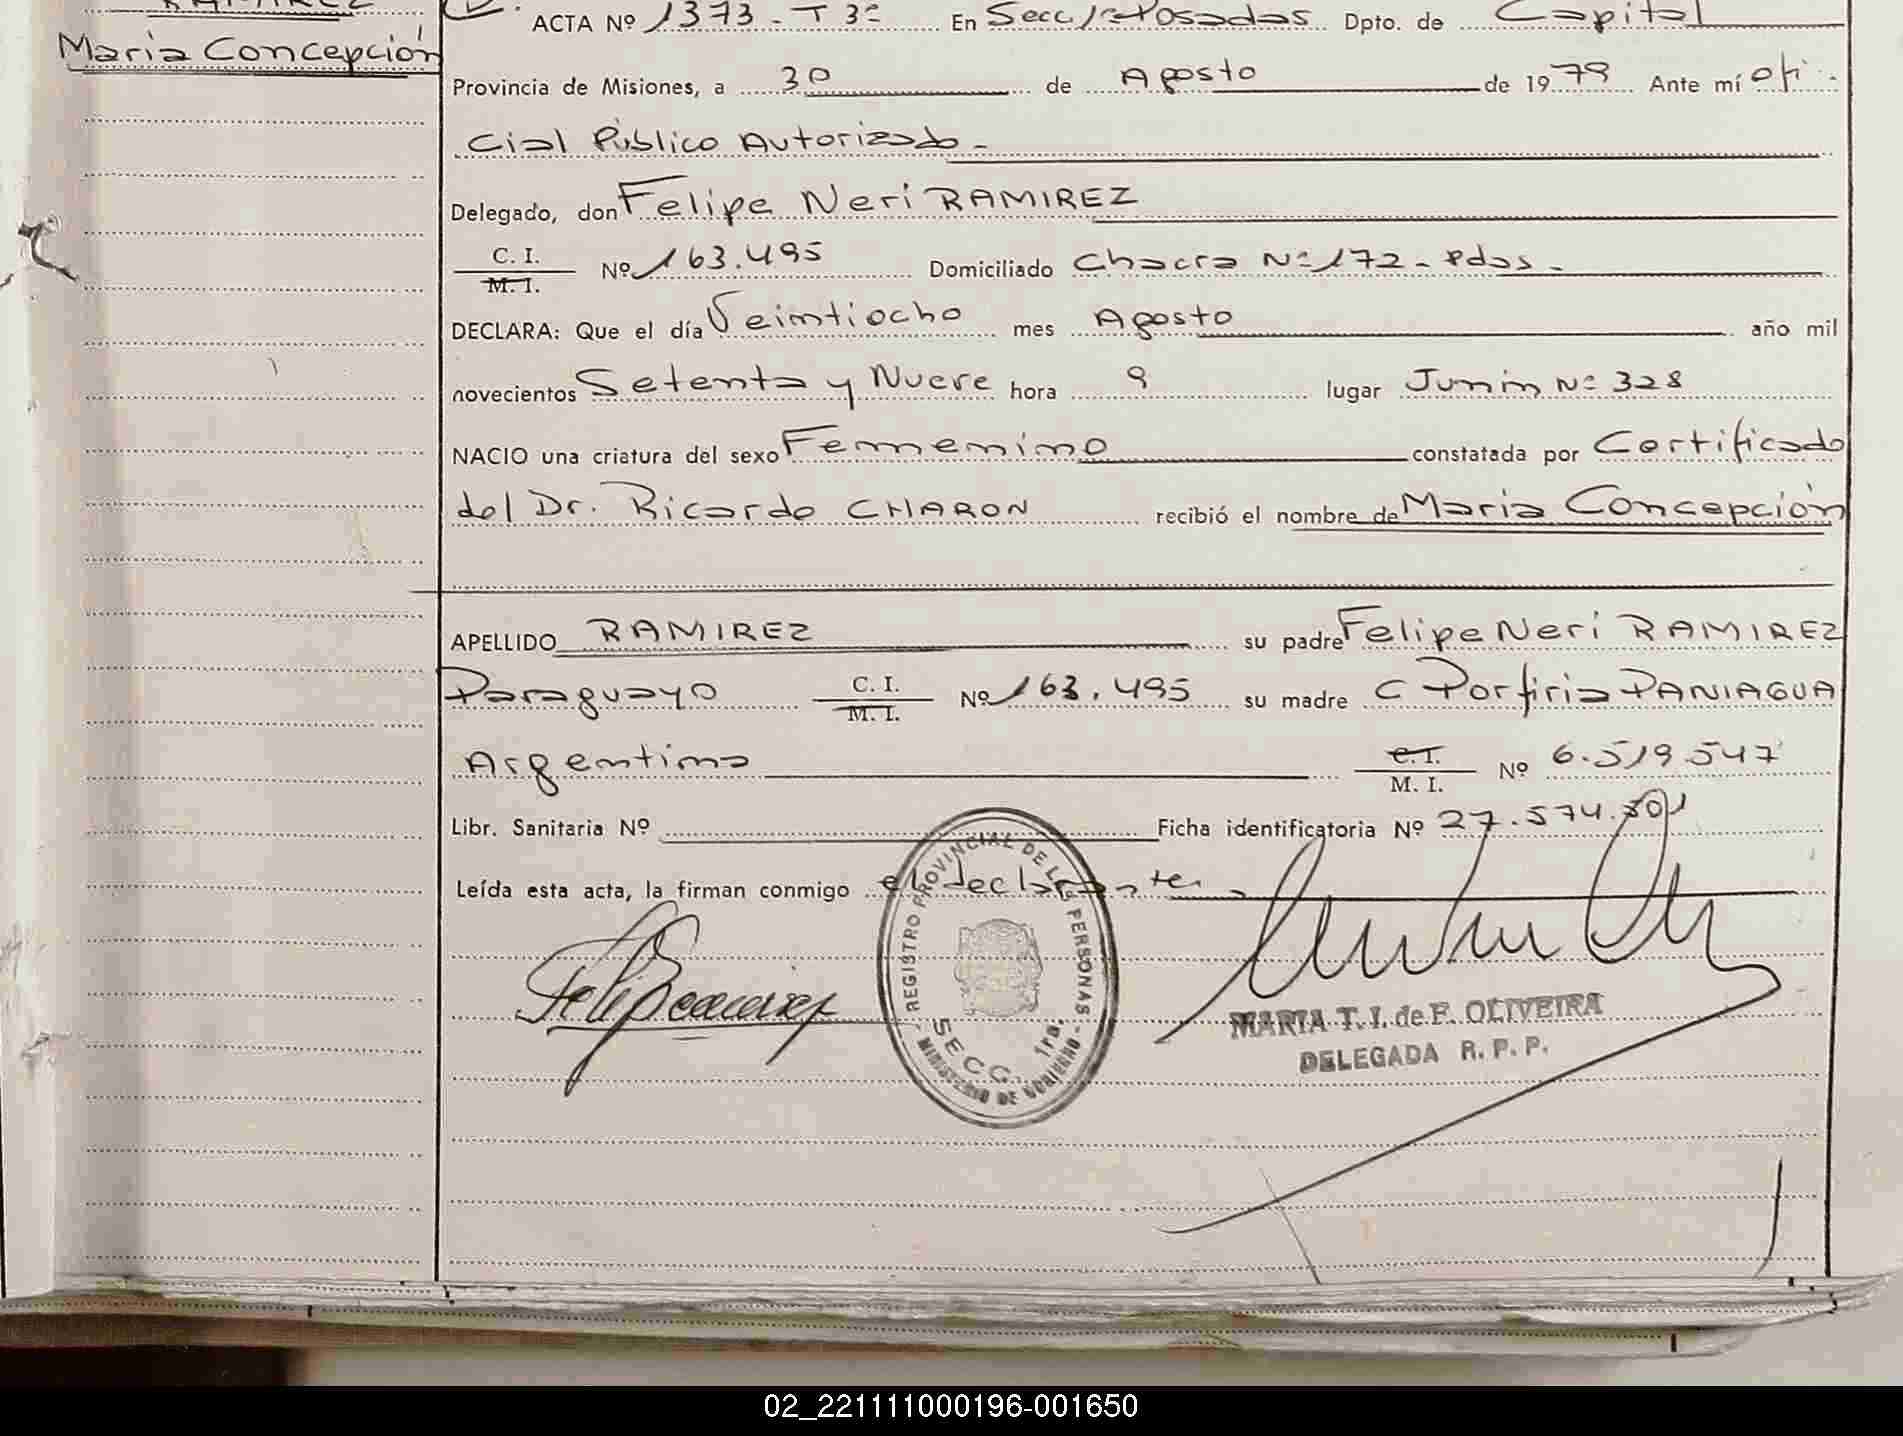 RAMIREZ
Maria Concepción
ACTA Nº 1373 - T 3º En Secc 1ª Posadas Dpto. de Capital
Provincia de Misiones, a 30 de Agosto de 1979 Ante mí ofi-
cial Público Autorizado -
Delegado, don Felipe Neri RAMIREZ
C. I.
M. I. Nº 163.495 Domiciliado Chacra Nº 172 - Pdas -
DECLARA: Que el día Veintiocho mes Agosto año mil
novecientos Setenta y Nueve hora 9 lugar Junín Nº 328
NACIO una criatura del sexo Femenino constatada por Certificado
del Dr. Ricardo CHARON recibió el nombre de Maria Concepción
APELLIDO RAMIREZ su padre Felipe Neri RAMIREZ
Paraguayo C. I.
M. I. Nº 163.495 su madre C Porfiria PANIAGUA
Argentina C. I.
M. I. Nº 6.519.547
Libr. Sanitaria Nº Ficha identificatoria Nº 27.574.301
Leída esta acta, la firman conmigo el declarante
REGISTRO PROVINCIAL DE LAS PERSONAS
SECC. 1ra.
MINISTERIO DE GOBIERNO
MARIA T. I. de F. OLIVEIRA
DELEGADA R. P. P.
02_221111000196-001650